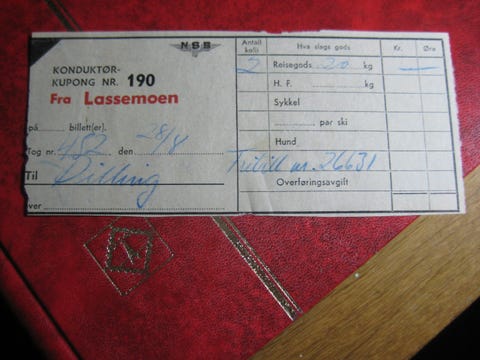 NSB
KONDUKTØR-
KUPONG NR. 190
Fra Lassemoen
på ........ billett(er).
Tog nr. 482 den 28/8
Til Rilling
over
Antall kolli Hva slags gods Kr. Øre
2 Reisegods 20 kg —
H. F. ........ kg
Sykkel
........ par ski
Hund
Fribill nr. 26631
Overføringsavgift